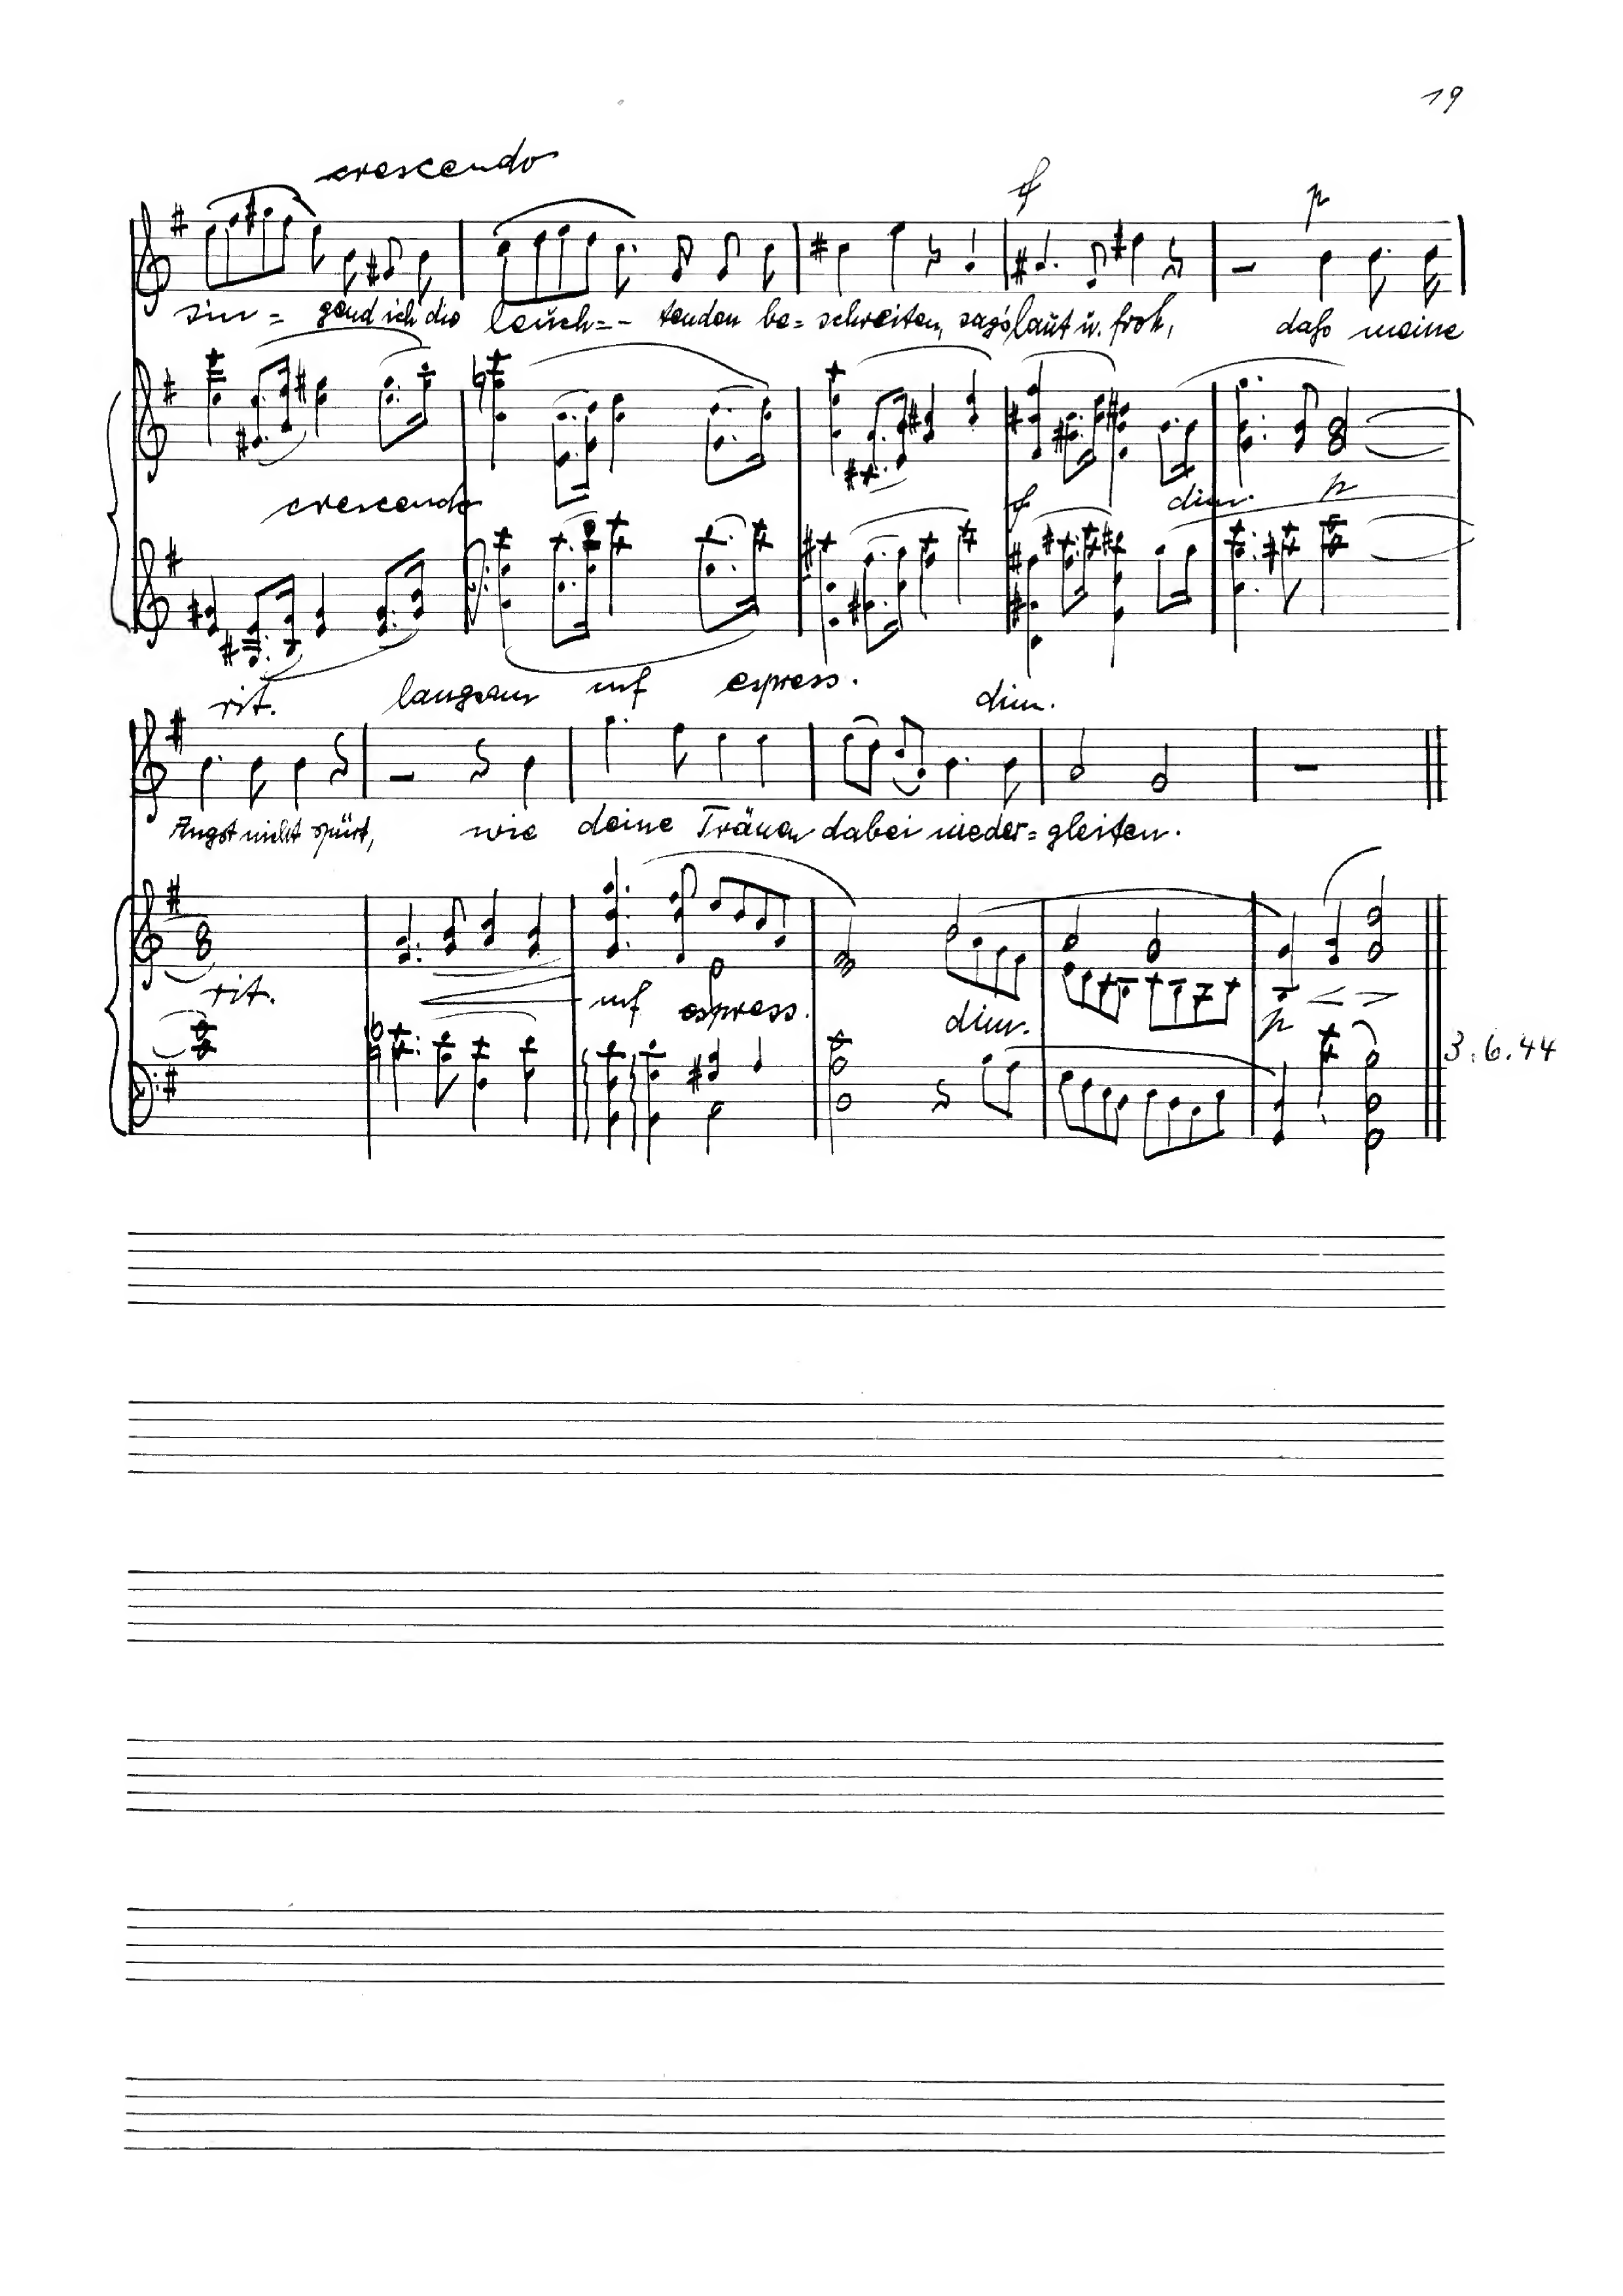 19
crescendo
f p
sin = gend ich die leuch = - tenden be = schreiten, sag's laut u. froh, daß meine
crescendo f dim. p
rit. langsam mf espress. dim.
Angst nicht spürt, wie deine Tränen dabei nieder = gleiten.
rit. mf espress. dim. p
3.6.44